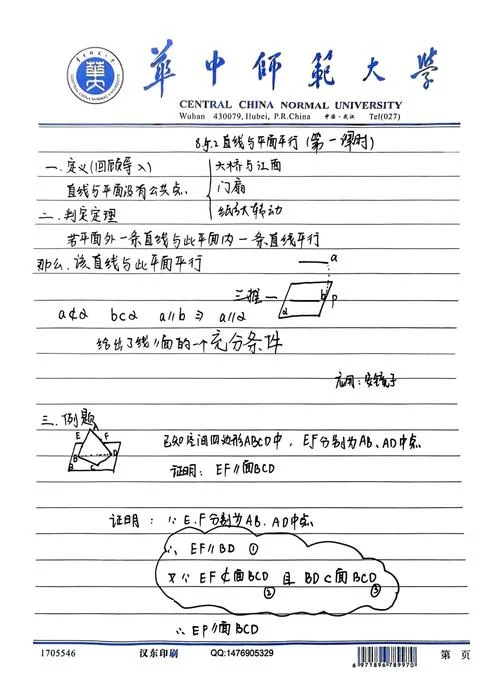 華中師範大學
CENTRAL CHINA NORMAL UNIVERSITY
Wuhan 430079, Hubei, P.R.China 中国·武汉 Tel(027)
8.5.2 直线与平面平行 (第一课时)
一.定义(回顾导入) 大桥与江面
直线与平面没有公共点. 门扇
二.判定定理 纸张转动
若平面外一条直线与此平面内一条直线平行
那么.该直线与此平面平行
a
三推一 b P
α
a⊄α b⊂α a∥b ⇒ a∥α
给出了线∥面的一个充分条件
应用:安镜子
三.例题
A
E F
B D
B C
已知空间四边形ABCD中, E,F分别为AB、AD中点
证明: EF∥面BCD
证明: ∵ E.F分别为AB、AD中点
∴ EF∥BD ①
又∵ EF⊄面BCD 且 BD⊂面BCD
② ③
∴ EF∥面BCD
1705546 汉东印刷 QQ:1476905329 6971896789970 第 页